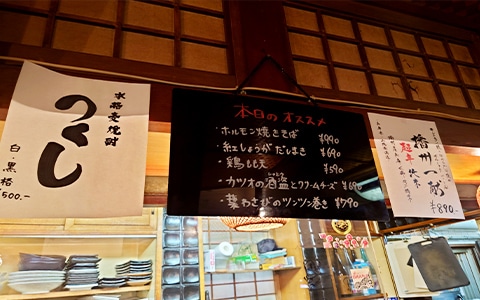 本格麦焼酎
つくし
白・黒 各
¥500-
本日のオススメ
・ホルモン焼きそば ¥990
・紅しょうがだしまき ¥690
・鶏ももえ ¥590
・カツオの酒盗とクワームチーズ ¥690
・葉わさびのツンツン巻き ¥790
播州一献
超辛
¥890-